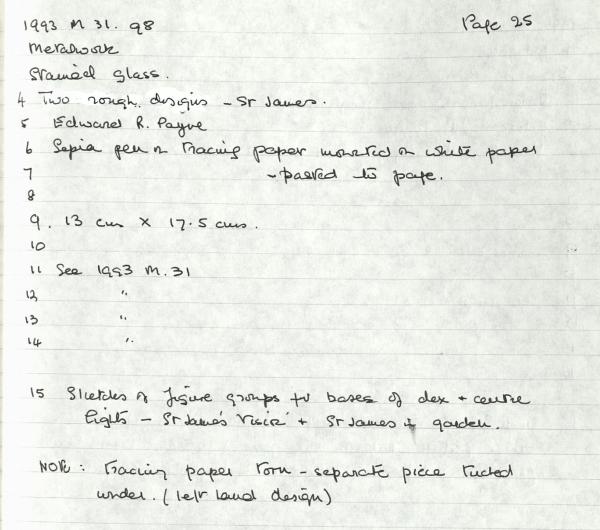 1993 M 31. 98 Page 25
Metalwork
Stained Glass.
4 Two rough designs - St James.
5 Edward R. Payne
6 Sepia pen on tracing paper mounted on white paper
7 - pasted to page.
8
9. 13 cms X 17.5 cms.
10
11 See 1993 M. 31
12 "
13 "
14 "
15 Sketches of figure groups for bases of dex + centre
lights - St James' Visit + St James in garden.
NOTE : tracing paper torn - separate piece tucked
under. (left hand design)